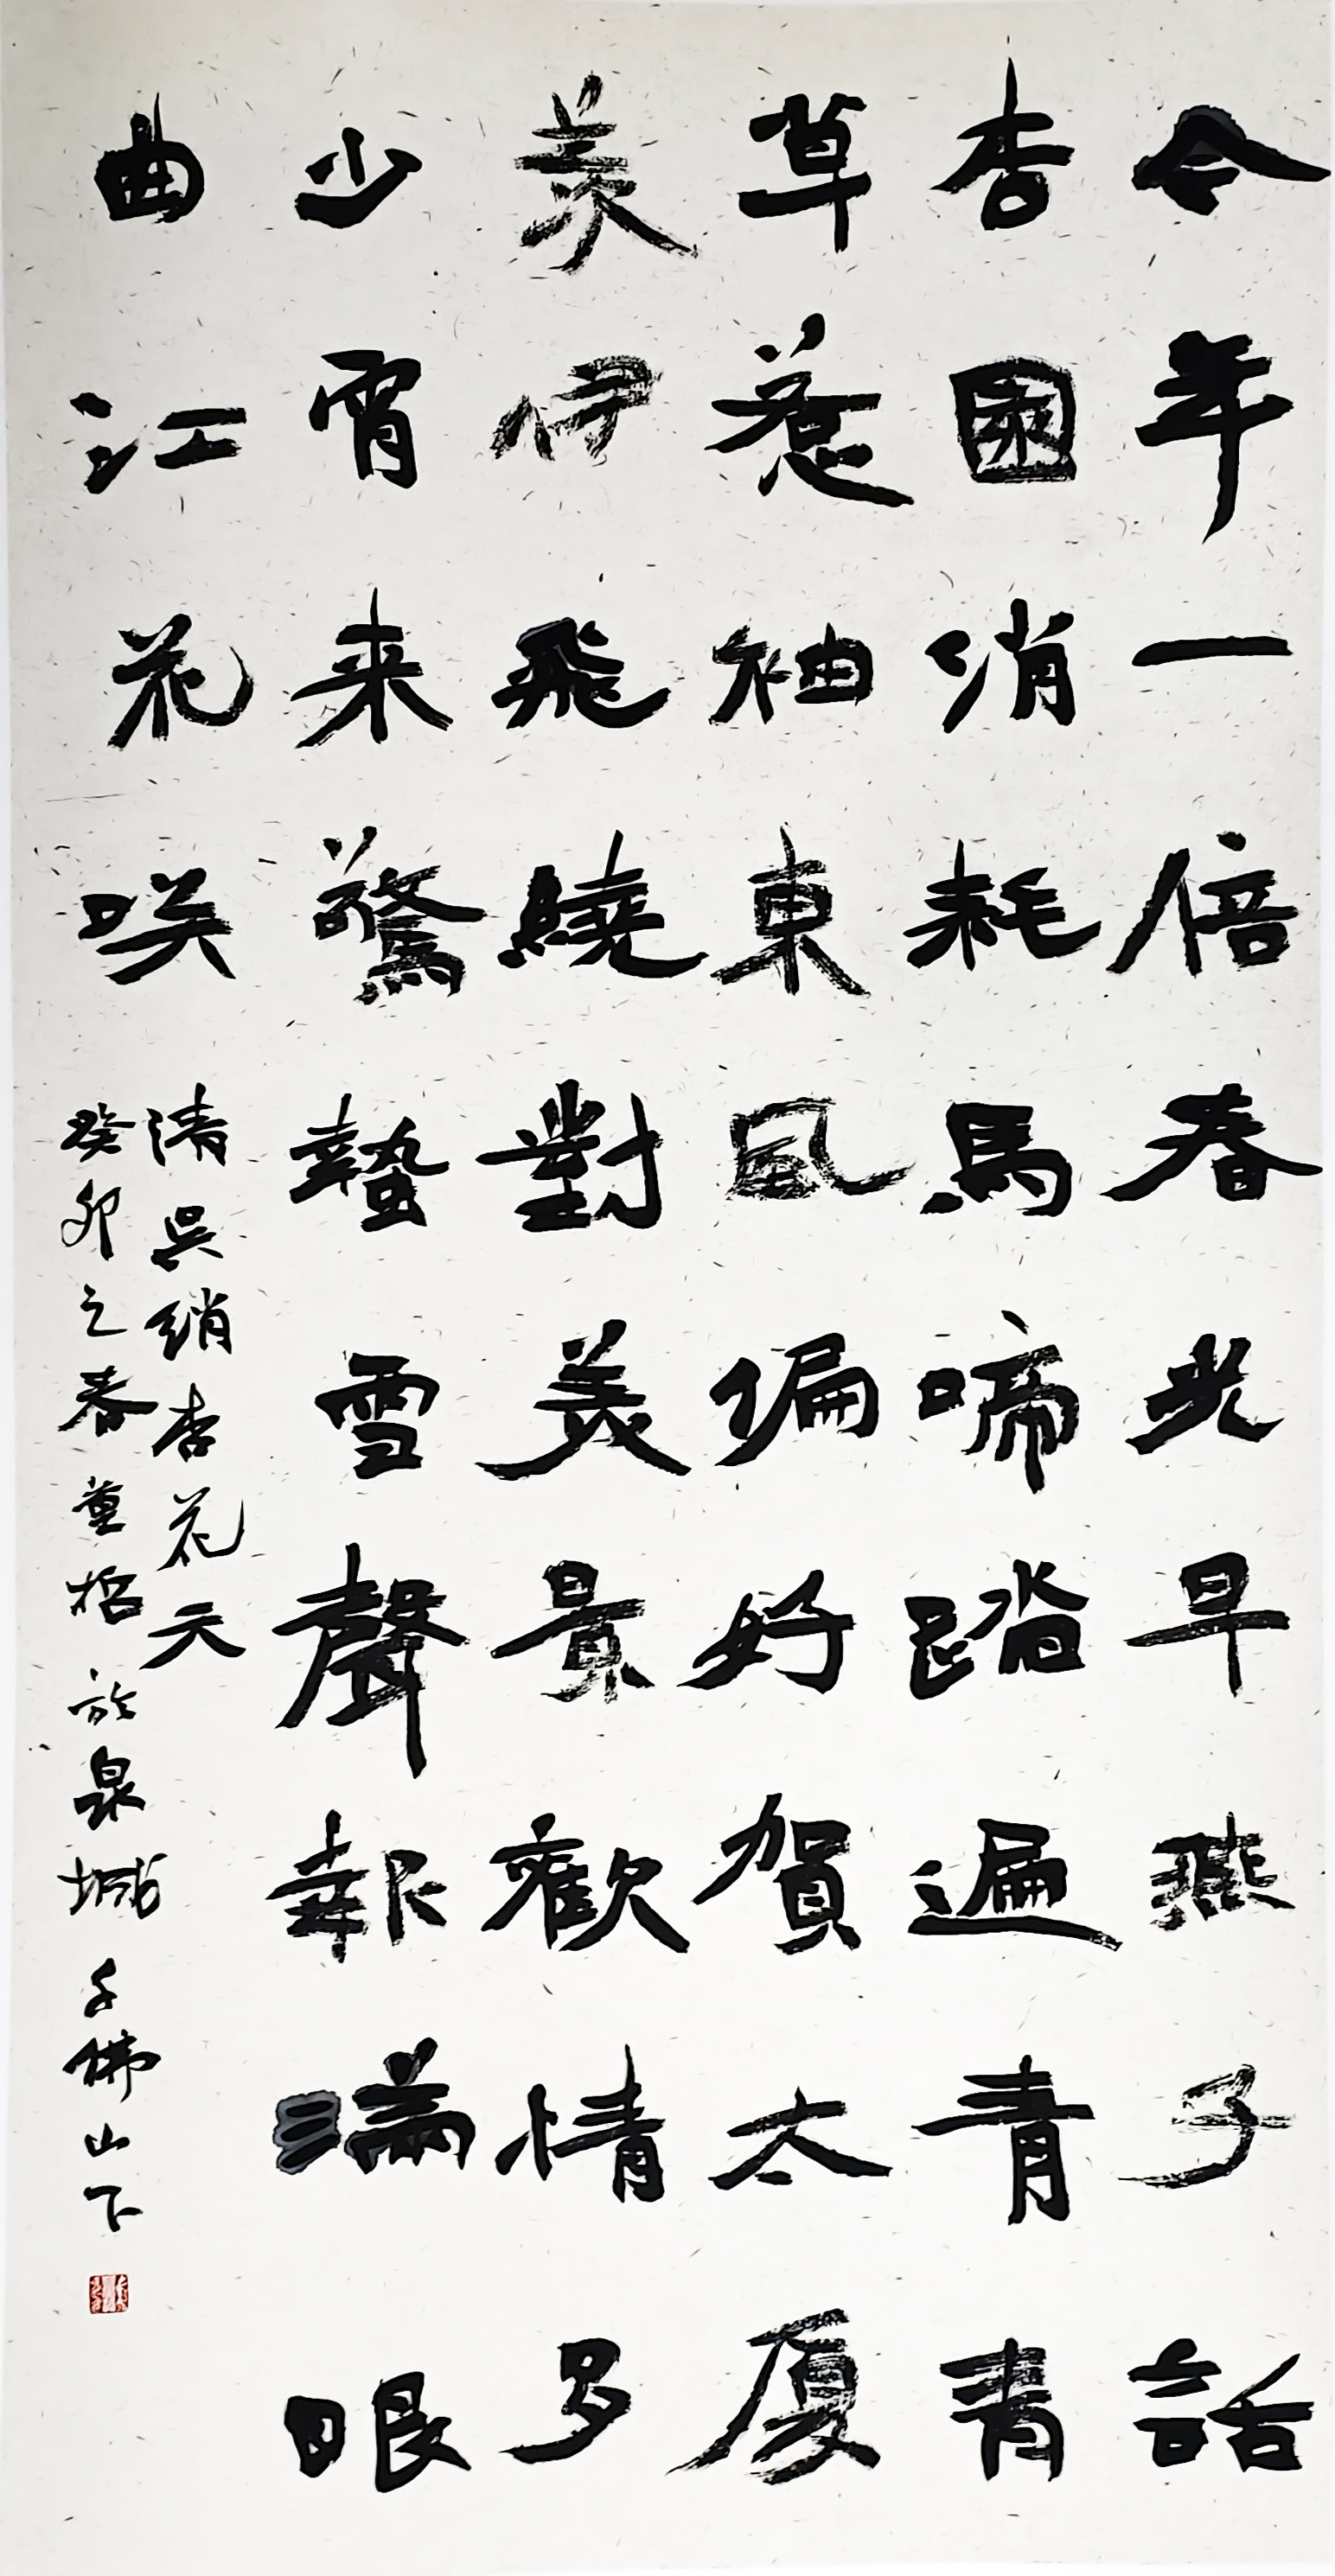 今年一倍春光早燕子話
杏園消耗馬啼踏遍青青
草惹袖東風偏好賀太厦
羡伊飛繞對美景歡情多
少宵来驚蟄雪聲報滿眼
曲江花咲
清吳綃杏花天
癸卯之春董於泉城千佛山下